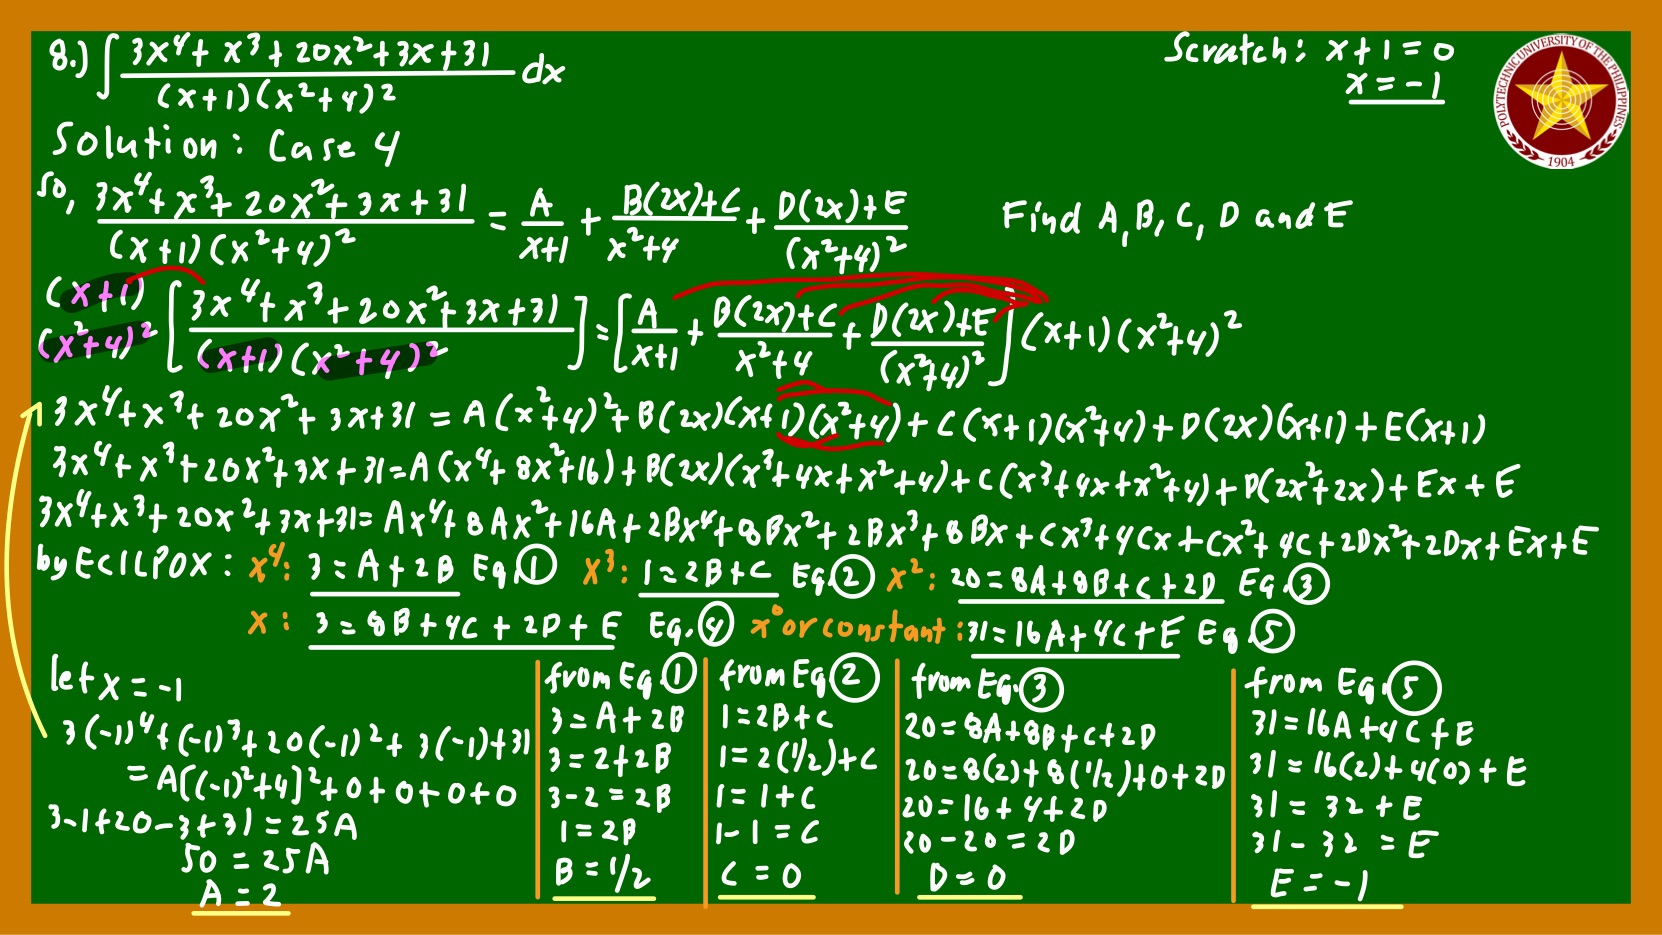 8.) ∫ (3x⁴ + x³ + 20x² + 3x + 31) / ((x+1)(x²+4)²) dx
Scratch: x+1=0
x = -1
POLYTECHNIC UNIVERSITY OF THE PHILIPPINES
1904
Solution: Case 4
So, (3x⁴ + x³ + 20x² + 3x + 31) / ((x+1)(x²+4)²) = A/(x+1) + (B(2x)+C)/(x²+4) + (D(2x)+E)/(x²+4)²
Find A, B, C, D and E
(x+1)(x²+4)² [(3x⁴ + x³ + 20x² + 3x + 31) / ((x+1)(x²+4)²)] = [A/(x+1) + (B(2x)+C)/(x²+4) + (D(2x)+E)/(x²+4)²] (x+1)(x²+4)²
3x⁴ + x³ + 20x² + 3x + 31 = A(x²+4)² + B(2x)(x+1)(x²+4) + C(x+1)(x²+4) + D(2x)(x+1) + E(x+1)
3x⁴ + x³ + 20x² + 3x + 31 = A(x⁴ + 8x² + 16) + B(2x)(x³ + 4x + x² + 4) + C(x³ + 4x + x² + 4) + D(2x² + 2x) + Ex + E
3x⁴ + x³ + 20x² + 3x + 31 = Ax⁴ + 8Ax² + 16A + 2Bx⁴ + 8Bx² + 2Bx³ + 8Bx + Cx³ + 4Cx + Cx² + 4C + 2Dx² + 2Dx + Ex + E
by ECILPOX: x⁴: 3 = A + 2B Eq.① x³: 1 = 2B + C Eq.② x²: 20 = 8A + 8B + C + 2D Eq.③
x: 3 = 8B + 4C + 2D + E Eq.④ x⁰ or constant: 31 = 16A + 4C + E Eq.⑤
let x = -1
3(-1)⁴ + (-1)³ + 20(-1)² + 3(-1) + 31
= A[(-1)² + 4]² + 0 + 0 + 0 + 0
3 - 1 + 20 - 3 + 31 = 25A
50 = 25A
A = 2
from Eq.①
3 = A + 2B
3 = 2 + 2B
3 - 2 = 2B
1 = 2B
B = 1/2
from Eq.②
1 = 2B + C
1 = 2(1/2) + C
1 = 1 + C
1 - 1 = C
C = 0
from Eq.③
20 = 8A + 8B + C + 2D
20 = 8(2) + 8(1/2) + 0 + 2D
20 = 16 + 4 + 2D
20 - 20 = 2D
D = 0
from Eq.⑤
31 = 16A + 4C + E
31 = 16(2) + 4(0) + E
31 = 32 + E
31 - 32 = E
E = -1